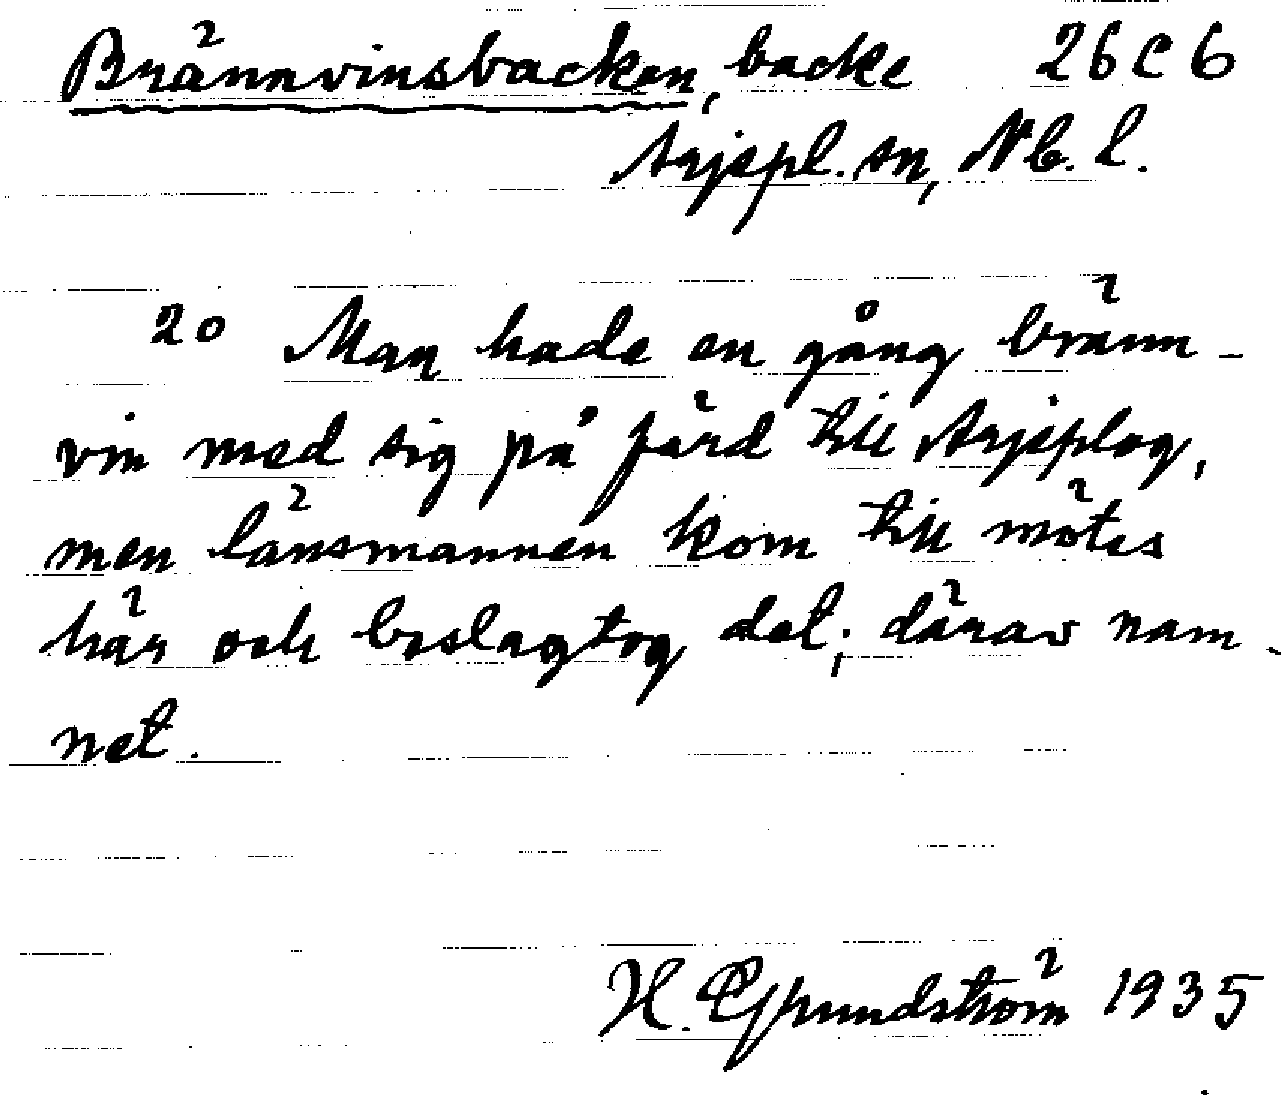 Brännvinsbacken, backe 26 C 6
Arjspl. sn, Nb. L.
20 Man hade en gång bränn-
vin med sig på färd till Arjeplog,
men länsmannen kom till mötes
här och beslagtog det; därav nam-
net.
H. Grundström 1935